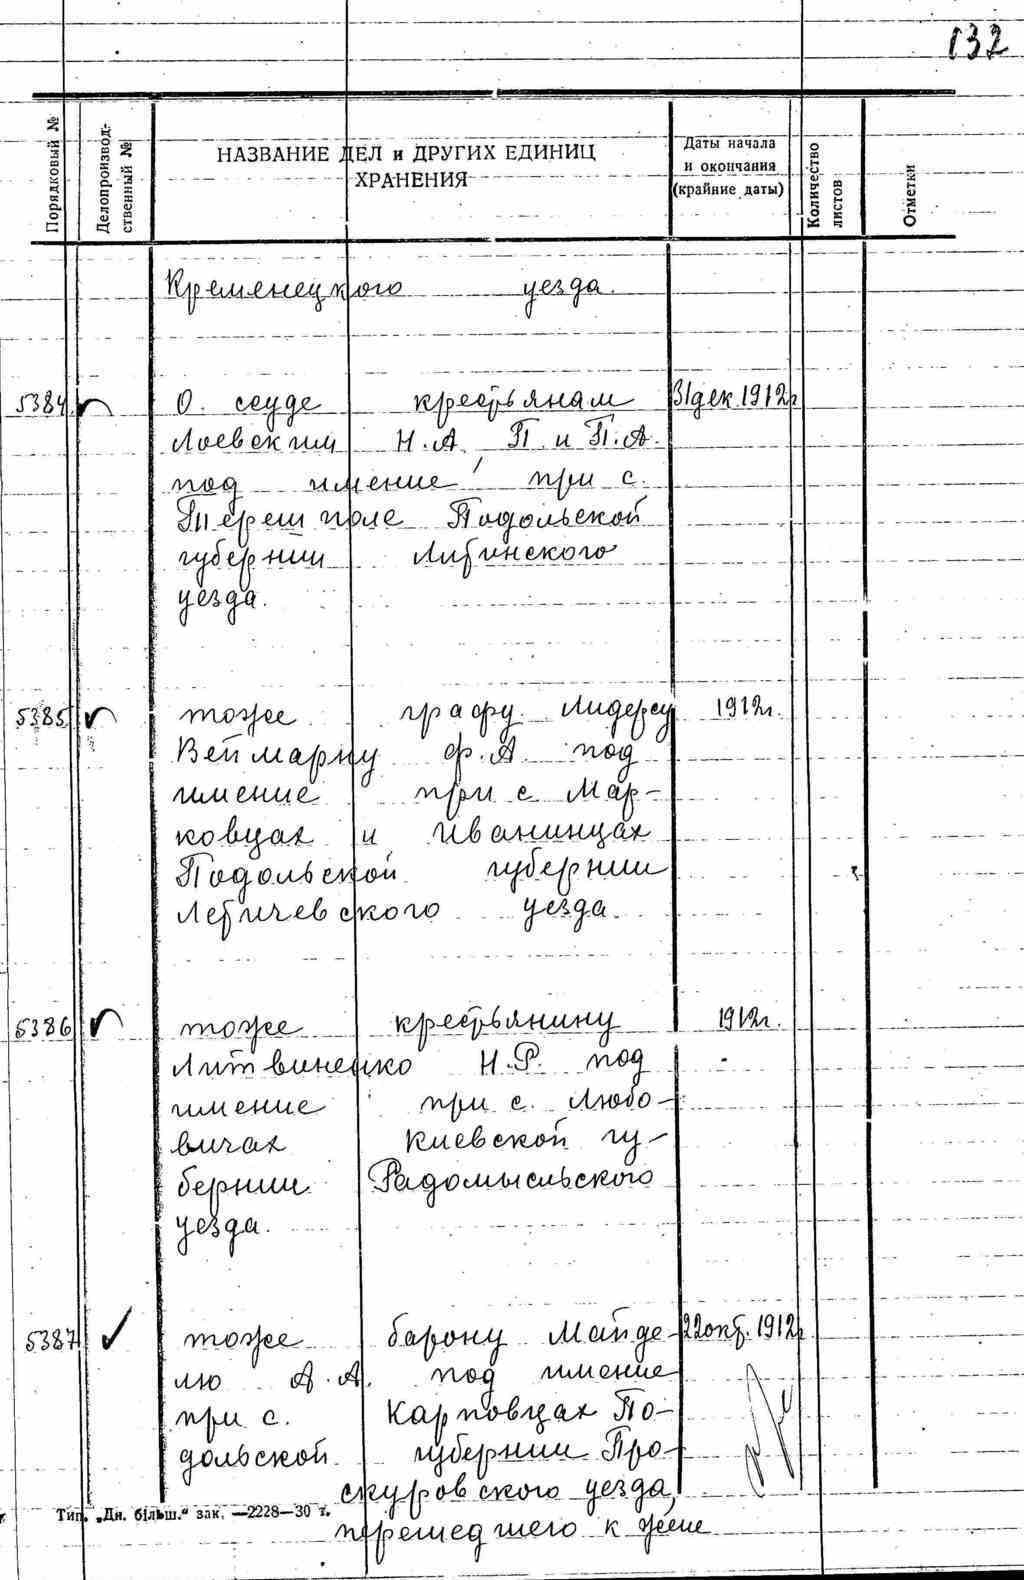 132
Порядковый №
Делопроизвод-
ственный №
НАЗВАНИЕ ДЕЛ и ДРУГИХ ЕДИНИЦ
ХРАНЕНИЯ
Даты начала
и окончания
(крайние даты)
Количество
листов
Отметки
Кременецкого уезда.
5384 О ссуде крестьянам 31 дек. 1912г
Лоевским Н.А, П. и П.А.
под имение при с.
Терешполе Подольской
губернии Литинского
уезда.
5385 тоже графу Лидерсу 1912г.
Веймарну Ф.А. под
имение при с Мар-
ковцах и Иванинцах
Подольской губернии
Летичевского уезда.
5386 тоже крестьянину 1912г.
Литвиненко Н.Р. под
имение при с. Любо-
вичах Киевской гу-
бернии Радомысльского
уезда.
5387 тоже барону Майде- 22 окт. 1912г
лю А.А. под имение
при с. Карповцах По-
дольской губернии Про-
скуровского уезда,
перешедшего к жене
Тип. „Дн. більш." зак. —2228—30 т.